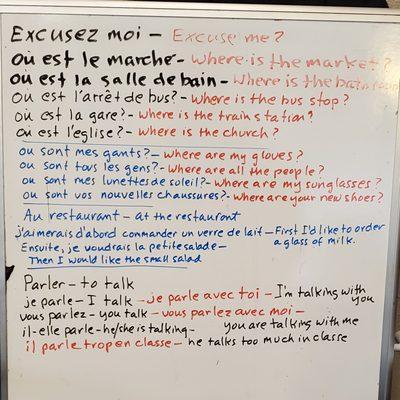 Excusez moi - Excuse me?
Où est le marché - Where is the market?
Où est la salle de bain - Where is the bathroom
Où est l'arrêt de bus? - Where is the bus stop?
Où est la gare? - Where is the train station?
Où est l'eglise? - Where is the church?
Où sont mes gants? - Where are my gloves?
Où sont tous les gens? - Where are all the people?
Où sont mes lunettes de soleil? - Where are my sunglasses?
Où sont vos nouvelles chaussures? - Where are your new shoes?
Au restaurant - at the restaurant
j'aimerais d'abord commander un verre de lait - First I'd like to order
a glass of milk.
Ensuite, je voudrais la petite salade -
Then I would like the small salad
Parler - to talk
je parle - I talk - je parle avec toi - I'm talking with
you
vous parlez - you talk - vous parlez avec moi -
you are talking with me
il-elle parle - he/she is talking -
il parle trop en classe - he talks too much in classe